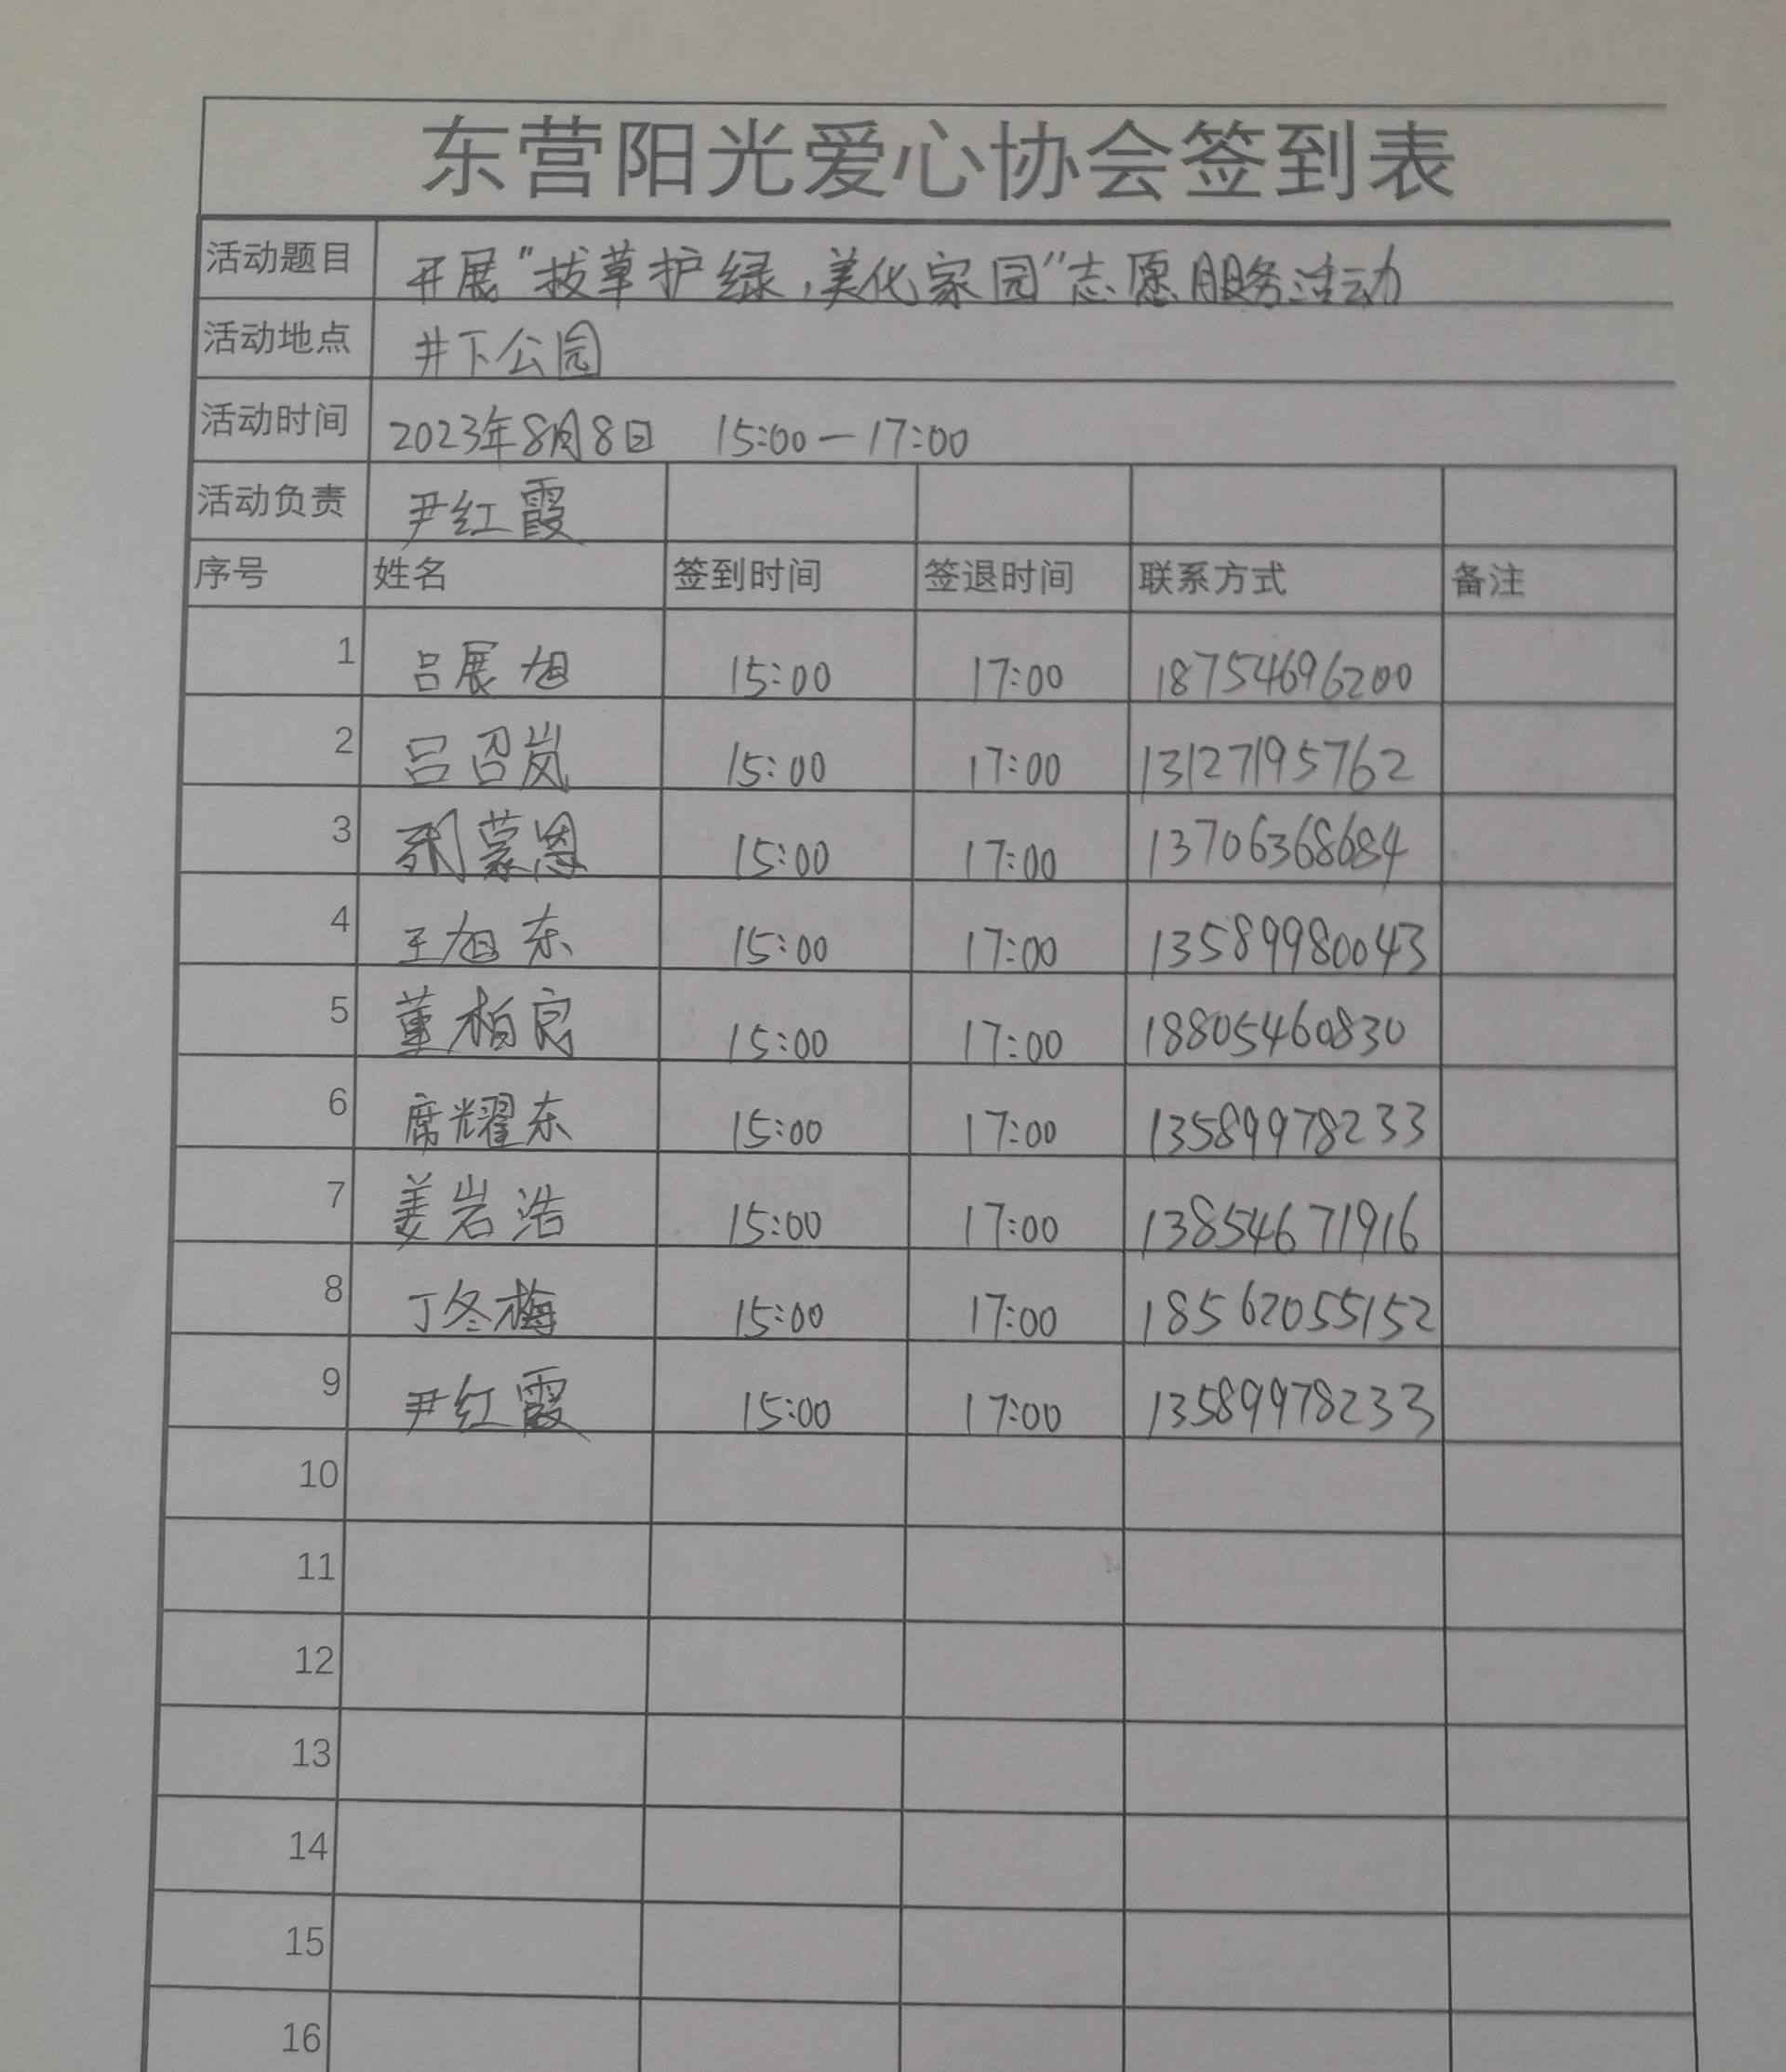 东营阳光爱心协会签到表
活动题目 开展"拔草护绿，美化家园"志愿服务活动
活动地点 井下公园
活动时间 2023年8月8日 15:00—17:00
活动负责 尹红霞
序号 姓名 签到时间 签退时间 联系方式 备注
1 吕展旭 15:00 17:00 18754696200
2 吕召岚 15:00 17:00 13127195762
3 刘蒙恩 15:00 17:00 13706368684
4 王旭东 15:00 17:00 13589980043
5 董柏良 15:00 17:00 18805460830
6 席耀东 15:00 17:00 13589978233
7 姜岩浩 15:00 17:00 13854671916
8 丁冬梅 15:00 17:00 18562055152
9 尹红霞 15:00 17:00 13589978233
10
11
12
13
14
15
16